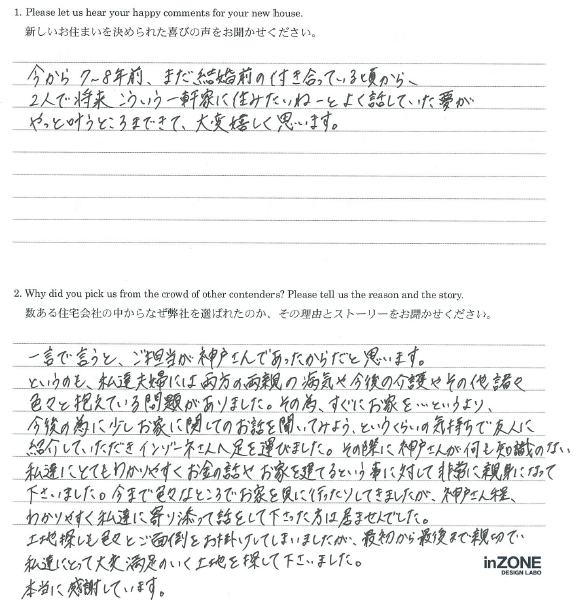 1. Please let us hear your happy comments for your new house.
新しいお住まいを決められた喜びの声をお聞かせください。
今から 7〜8年前、まだ結婚前の付き合っている頃から、
2人で将来 こういう一軒家に住みたいねーとよく話していた夢が
やっと叶うところまできて、大変嬉しく思います。
2. Why did you pick us from the crowd of other contenders? Please tell us the reason and the story.
数ある住宅会社の中からなぜ弊社を選ばれたのか、その理由とストーリーをお聞かせください。
一言で言うと、ご担当が神戸さんであったからだと思います。
というのも、私達夫婦には両方の両親の病気や今後の介護やその他諸々
色々と抱えている問題がありました。その為、すぐにお家を…というより、
今後の為に少しお家に関してのお話を聞いてみよう、というくらいの気持ちで友人に
紹介していただきインゾーネさんへ足を運びました。その際に神戸さんが何も知識のない
私達にとてもわかりやすくお金の話やお家を建てるという事に対して非常に親身になって
下さいました。今まで色々なところでお家を見に行ったりしてきましたが、神戸さん程、
わかりやすく私達に寄り添って話をして下さった方は居ませんでした。
土地探しも色々とご面倒をお掛けしてしまいましたが、最初から最後まで親切で
私達にとって大変満足のいく土地を探して下さいました。
本当に感謝しています。
inZONE
DESIGN LABO